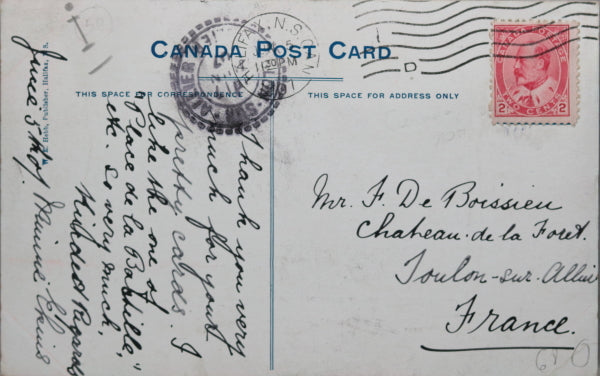 CANADA POST CARD
THIS SPACE FOR CORRESPONDENCE
THIS SPACE FOR ADDRESS ONLY
HALIFAX, N.S. CAN.
1130 PM
D
CANADA POSTAGE
2 2
TWO CENTS
W. E. Hebb, Publisher, Halifax, N. S.
June 5th 07
Thank you very
much for your
pretty cards. I
like the one of
"Place de la Bastille,"
etc. so very much.
Kindest Regards
Minnie
Mr. F. De Boissieu
Chateau-de-la Foret.
Toulon-sur-Allier
France.